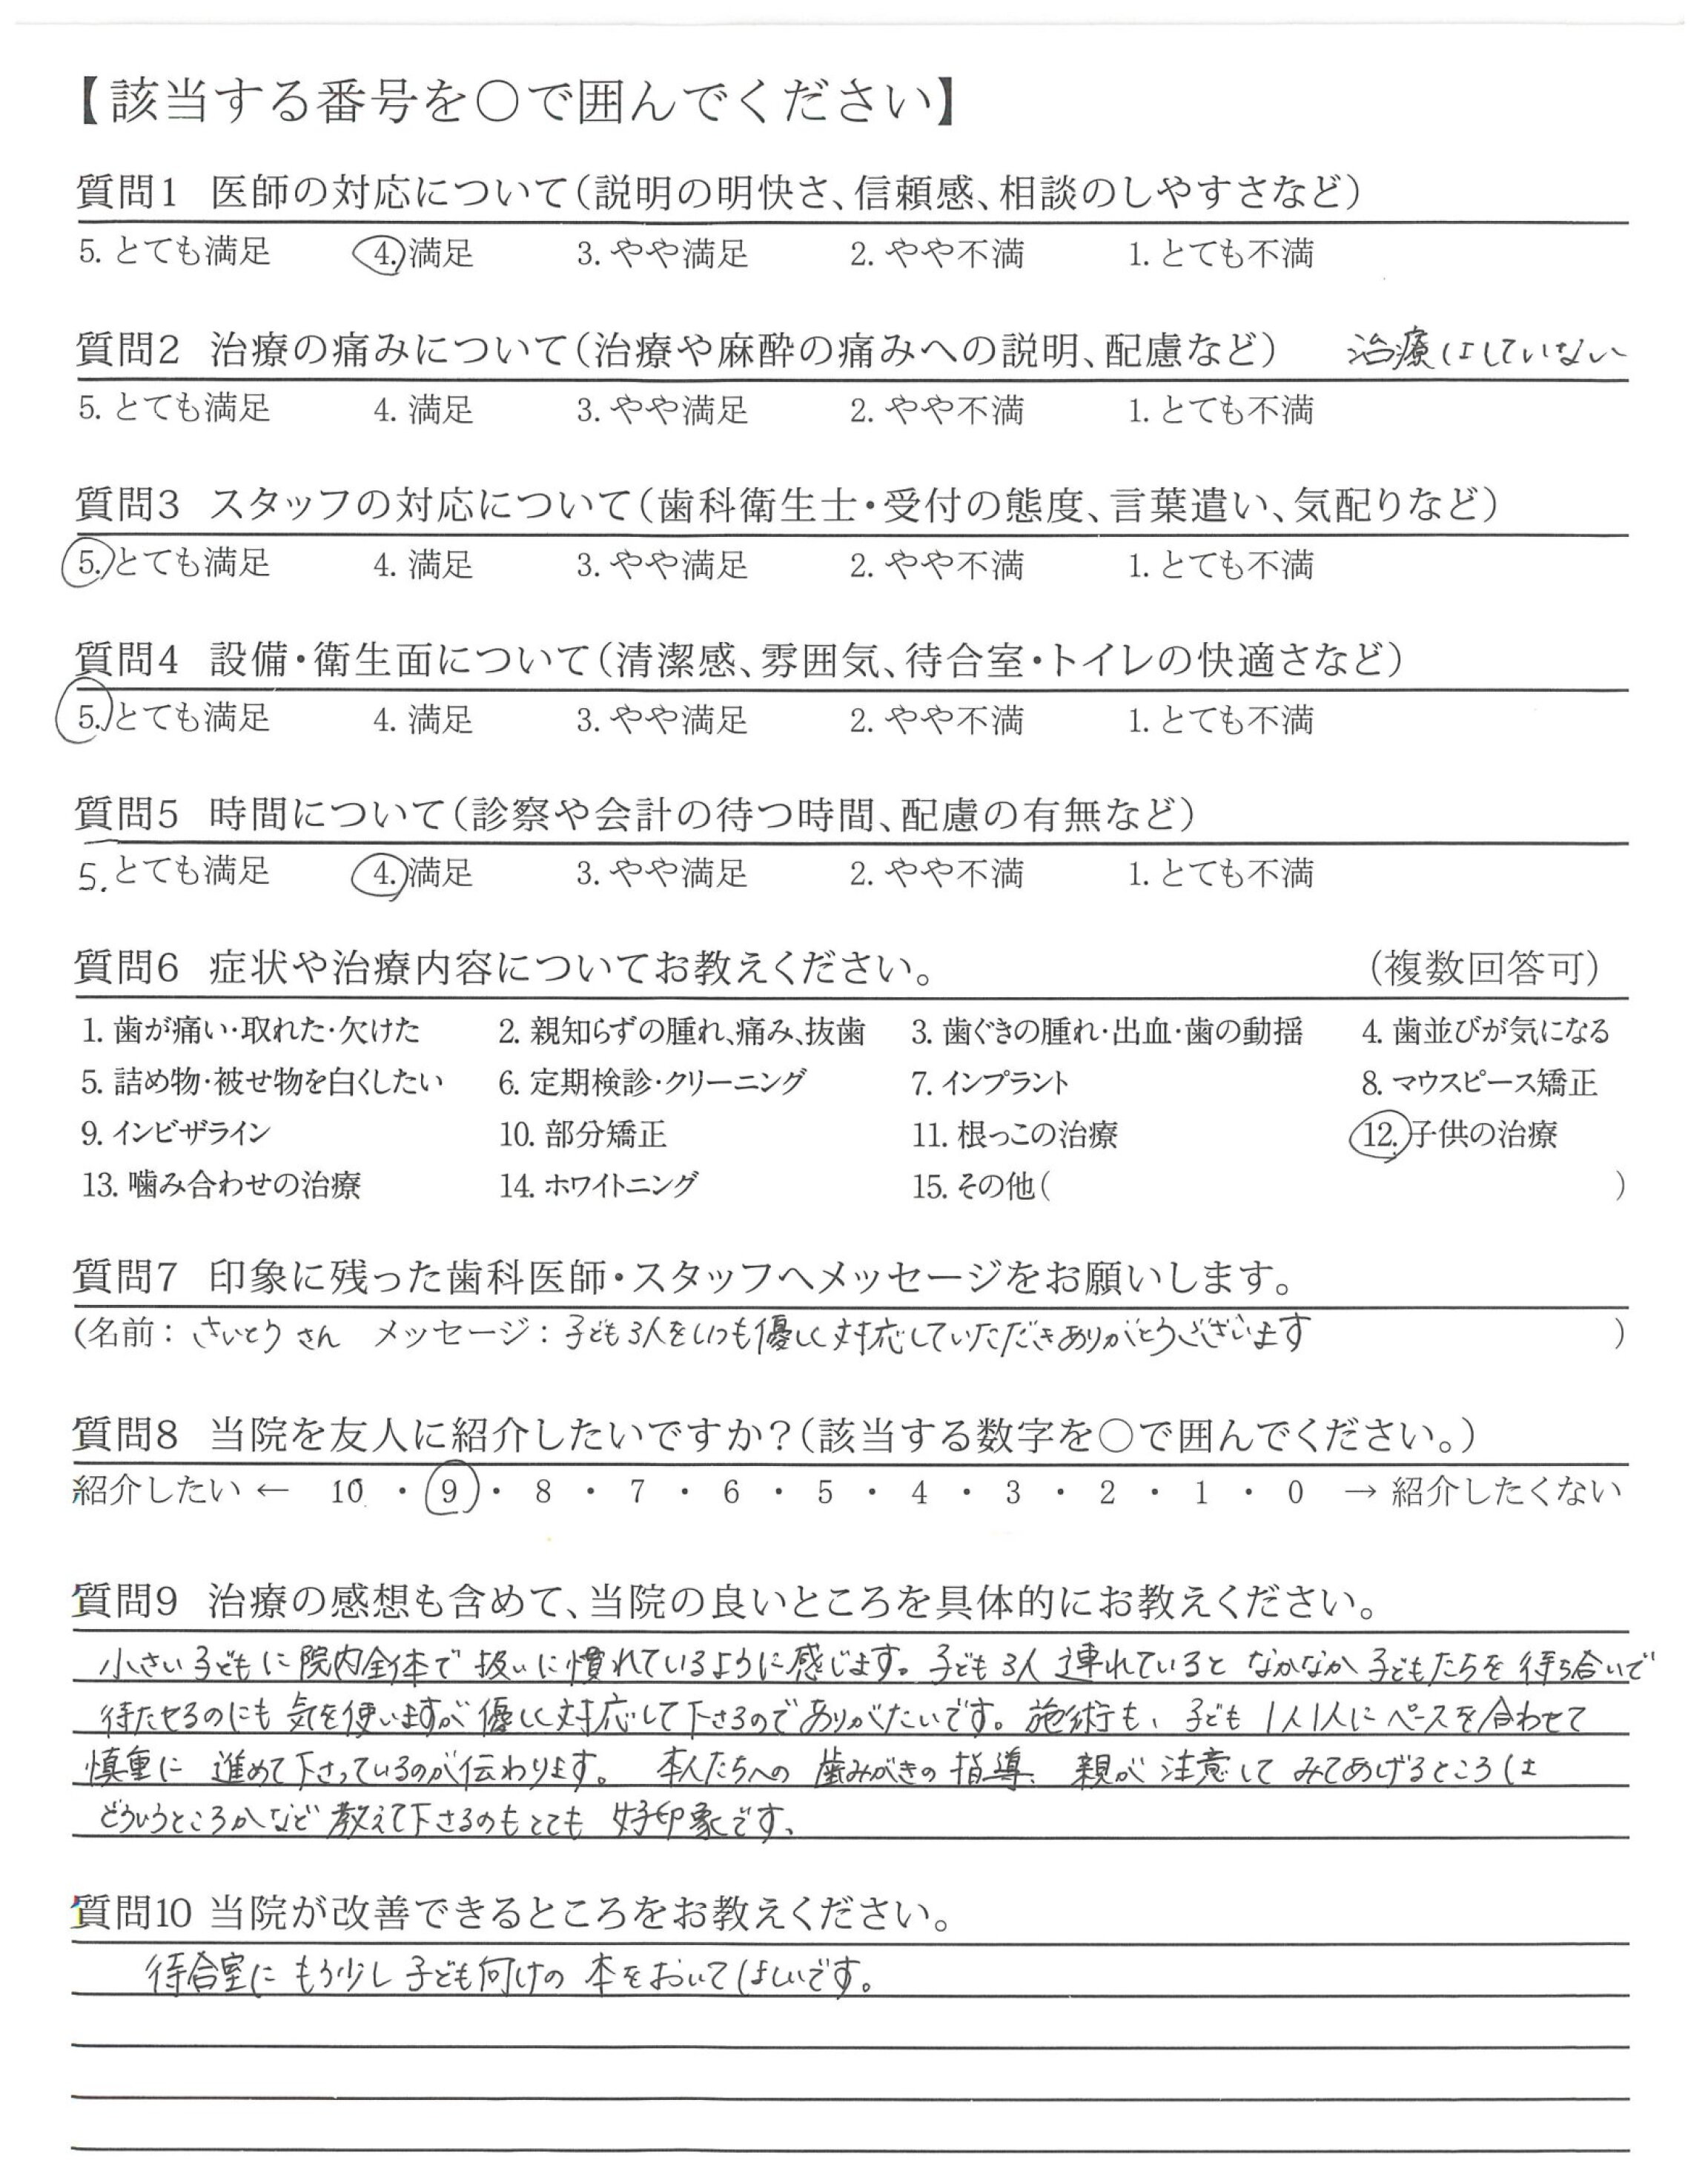 【該当する番号を○で囲んでください】
質問1 医師の対応について(説明の明快さ、信頼感、相談のしやすさなど)
5. とても満足 4. 満足 3. やや満足 2. やや不満 1. とても不満
質問2 治療の痛みについて(治療や麻酔の痛みへの説明、配慮など) 治療はしていない
5. とても満足 4. 満足 3. やや満足 2. やや不満 1. とても不満
質問3 スタッフの対応について(歯科衛生士・受付の態度、言葉遣い、気配りなど)
5. とても満足 4. 満足 3. やや満足 2. やや不満 1. とても不満
質問4 設備・衛生面について(清潔感、雰囲気、待合室・トイレの快適さなど)
5. とても満足 4. 満足 3. やや満足 2. やや不満 1. とても不満
質問5 時間について(診察や会計の待つ時間、配慮の有無など)
5. とても満足 4. 満足 3. やや満足 2. やや不満 1. とても不満
質問6 症状や治療内容についてお教えください。 (複数回答可)
1. 歯が痛い・取れた・欠けた 2. 親知らずの腫れ、痛み、抜歯 3. 歯ぐきの腫れ・出血・歯の動揺 4. 歯並びが気になる
5. 詰め物・被せ物を白くしたい 6. 定期検診・クリーニング 7. インプラント 8. マウスピース矯正
9. インビザライン 10. 部分矯正 11. 根っこの治療 12. 子供の治療
13. 噛み合わせの治療 14. ホワイトニング 15. その他( )
質問7 印象に残った歯科医師・スタッフへメッセージをお願いします。
(名前: さいとうさん メッセージ: 子ども3人をいつも優しく対応していただきありがとうございます )
質問8 当院を友人に紹介したいですか?(該当する数字を○で囲んでください。)
紹介したい ← 10 ・ 9 ・ 8 ・ 7 ・ 6 ・ 5 ・ 4 ・ 3 ・ 2 ・ 1 ・ 0 → 紹介したくない
質問9 治療の感想も含めて、当院の良いところを具体的にお教えください。
小さい子どもに院内全体で扱いに慣れているように感じます。子ども3人連れていると なかなか子どもたちを待ち合いで
待たせるのにも気を使いますが優しく対応して下さるのでありがたいです。施術も、子ども1人1人にペースを合わせて
慎重に進めて下さっているのが伝わります。 本人たちへの歯みがきの指導、親が注意してみてあげるところは
どういうところかなど教えて下さるのもとても好印象です、
質問10 当院が改善できるところをお教えください。
待合室にもう少し子ども向けの本をおいてほしいです。